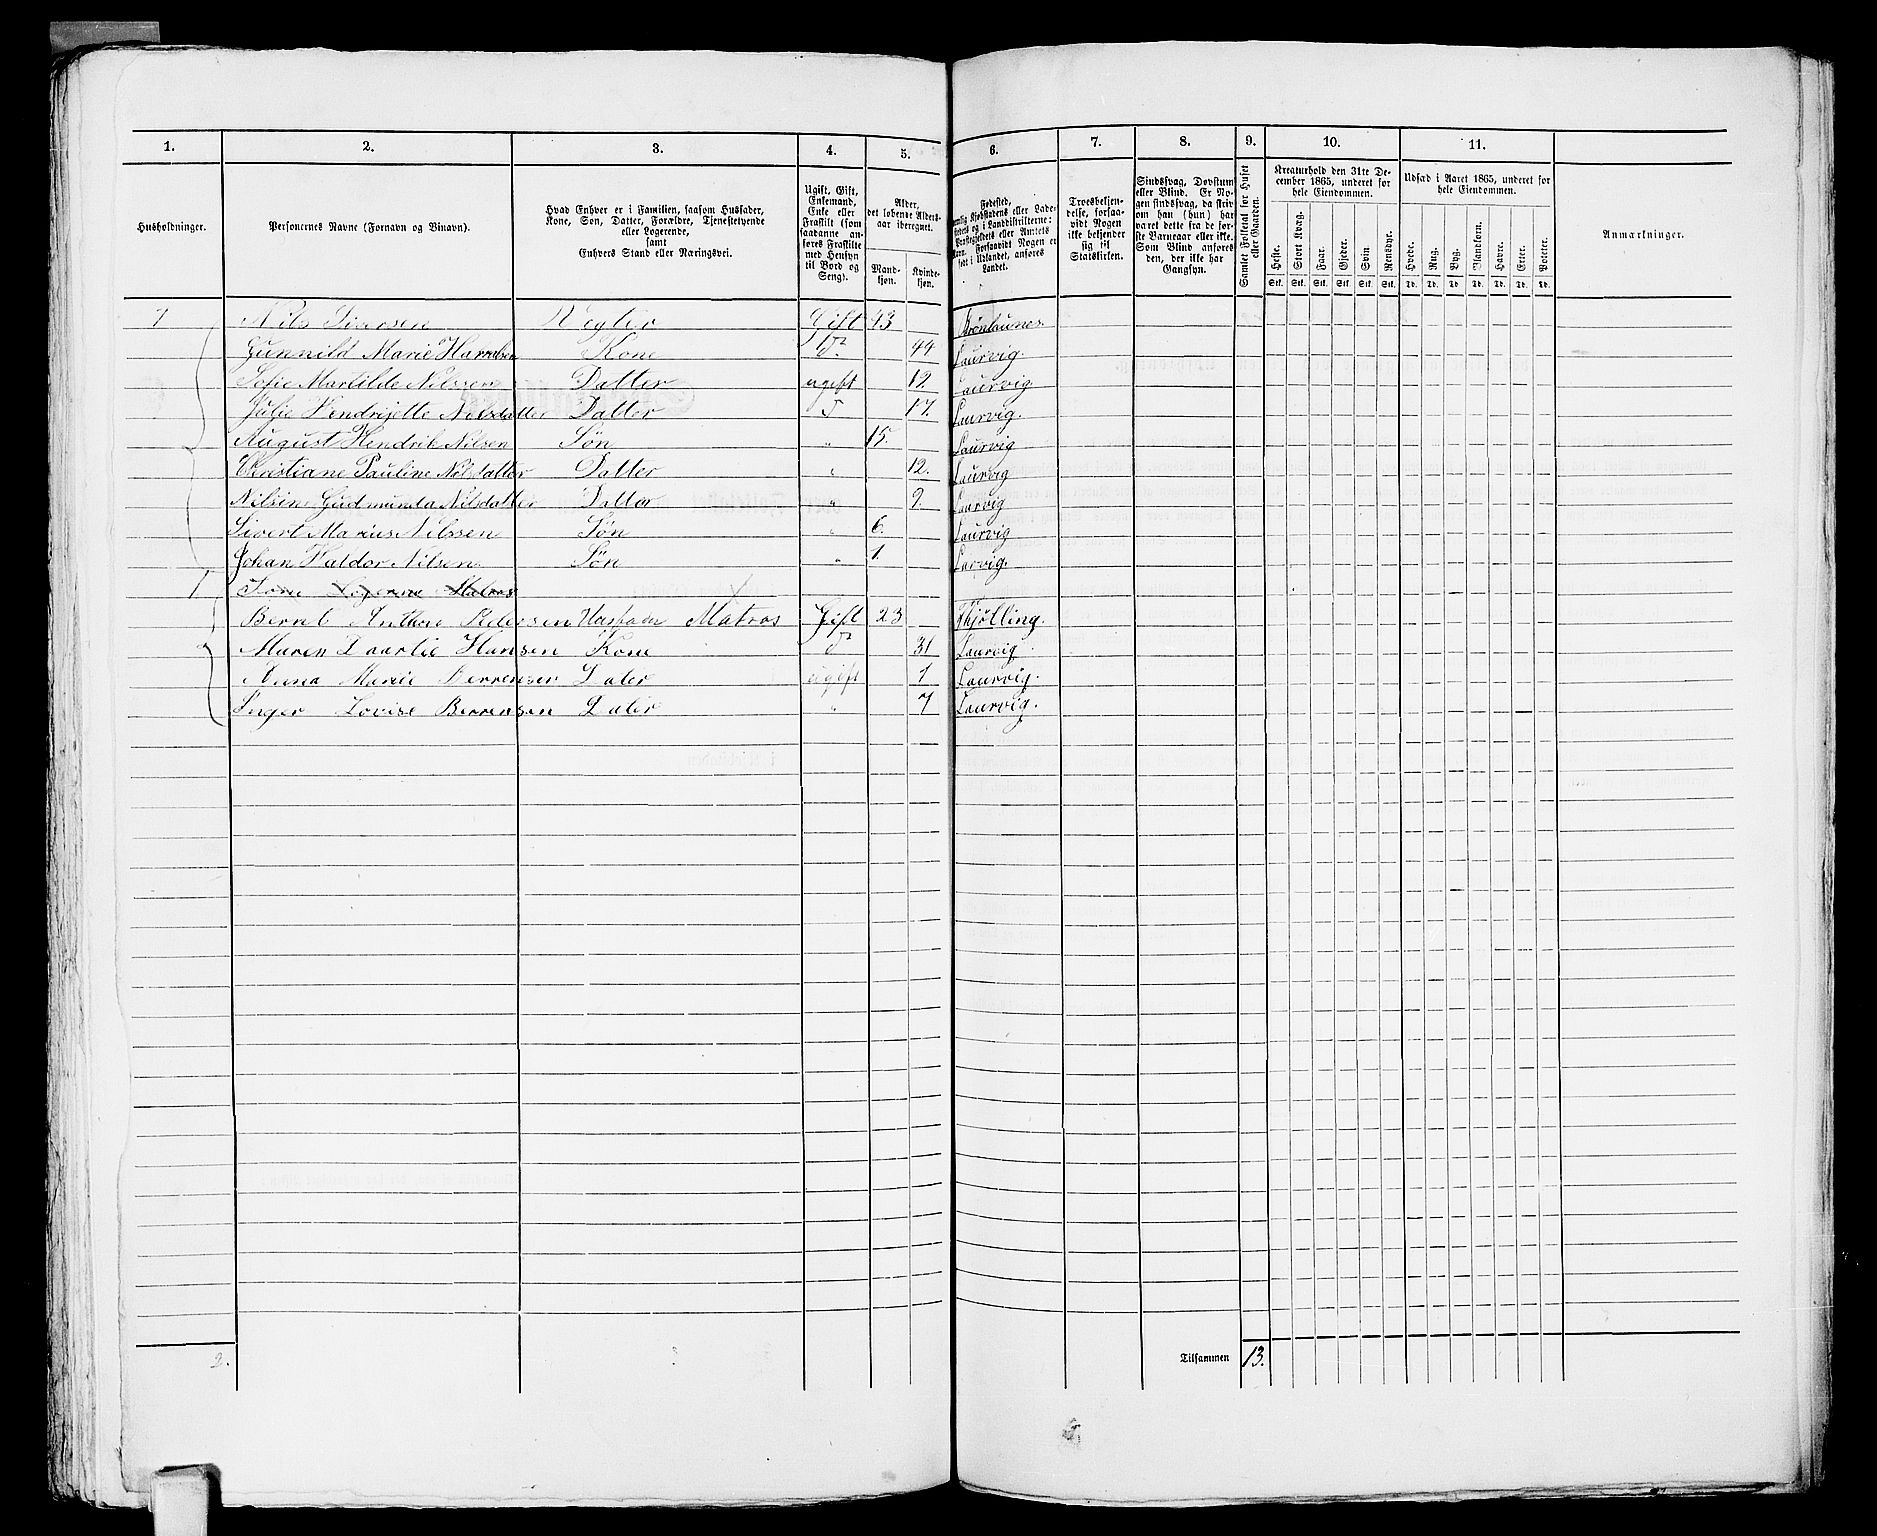 1. 2. 3. 4. 5. 6. 7. 8. 9. 10. 11.
Husholdninger.
Personernes Navne (Fornavn og Binavn).
Hvad Enhver er i Familien, saasom Husfader,
Kone, Søn, Datter, Forældre, Tjenestetyende
eller Logerende,
samt
Enhvers Stand eller Næringsvei.
Ugift, Gift,
Enkemand,
Enke eller
Fraskilt (som
saadanne an-
føres Fraskilte
med Hensyn
til Bord og
Seng).
Alder,
det løbende Alders-
aar iberegnet.
Mand-
kjøn.
Kvinde-
kjøn.
Fødested,
Kjøbstadens eller Lade-
stedets og i Landdistrikterne:
Præstegjeldets eller Amtets
Navn. Forsaavidt Nogen er
født i Udlandet, anføres
Landet.
Troesbekjen-
delse, forsaa-
vidt Nogen
ikke bekjender
sig til
Statskirken.
Sindssvag, Døvstum
eller Blind. Er No-
gen sindssvag, da skriv
om han (hun) har
været dette fra de før-
ste Barneaar eller ikke.
Som Blind anføres
den, der ikke har
Gangsyn.
Samlet Folketal for Huset
eller Gaarden.
Kreaturhold den 31te De-
cember 1865, underet for
hele Eiendommen.
Heste. Stort Kvæg. Faar. Gjeder. Svin. Rensdyr.
Stk. Stk. Stk. Stk. Stk. Stk.
Udsæd i Aaret 1865, underet for
hele Eiendommen.
Hvede. Rug. Byg. Blandkorn. Havre. Erter. Poteter.
Td. Td. Td. Td. Td. Td. Td.
Anmærkninger.
1 Nils Siversen Gift 43
Gunnild Marie Do 44 Laurvig.
Sofie Martilde Nilssen Datter ugift 19. Laurvig
Julie Hendrijette Nilsdatter Datter 17. Laurvig.
August Hendrik Nilsen Søn " 15. Laurvig
Christiane Pauline Nilsdatter Datter " 12. Laurvig
Nilsine Gudmunda Nilsdatter Datter " 9. Laurvig
Sivert Marius Nilssen Søn " 6. Laurvig
Johan Haldor Nilsen Søn " 1. Larvig.
1
Bernt Pedersen Husfader Matros Gift 23 Tjølling.
Maren Hansen Kone Do 31 Laurvig
Anna Marie Berrensen Dater ugift 1 Laurvig.
Inger Lovise Berrensen Dater " 7 Laurvig.
2.
Tilsammen 13.